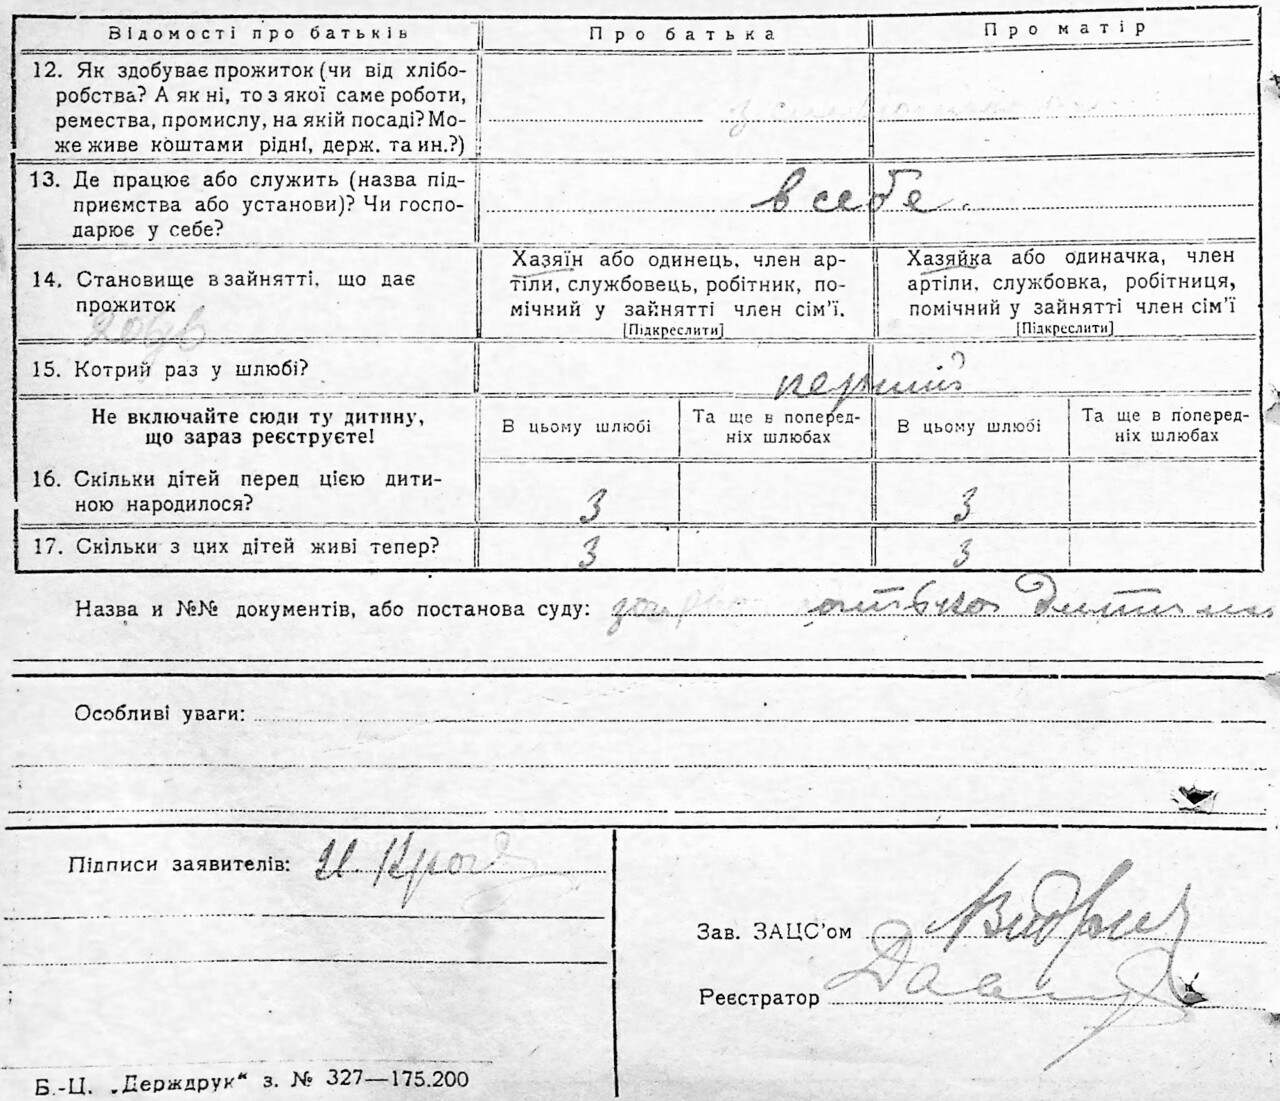 Відомості про батьків Про батька Про матір
12. Як здобуває прожиток (чи від хлібо-
робства? А як ні, то з якої саме роботи,
ремества, промислу, на якій посаді? Мо-
же живе коштами рідні, держ. та ин.?)
13. Де працює або служить (назва під-
приємства або установи)? Чи госпо-
дарює у себе?
в себе.
14. Становище в зайнятті, що дає
прожиток
Хазяїн або одинець, член ар-
тіли, службовець, робітник, по-
мічний у зайнятті член сім'ї.
[Підкреслити]
Хазяйка або одиначка, член
артіли, службовка, робітниця,
помічний у зайнятті член сім'ї
[Підкреслити]
15. Котрий раз у шлюбі?
перший
Не включайте сюди ту дитину,
що зараз реєструєте!
В цьому шлюбі
Та ще в поперед-
ніх шлюбах
В цьому шлюбі
Та ще в поперед-
ніх шлюбах
16. Скільки дітей перед цією дити-
ною народилося?
3 3
17. Скільки з цих дітей живі тепер? 3 3
Назва и №№ документів, або постанова суду:
Особливі уваги:
Підписи заявителів: И.
Зав. ЗАЦС'ом
Реєстратор
Б.-Ц. „Держдрук“ з. № 327—175.200